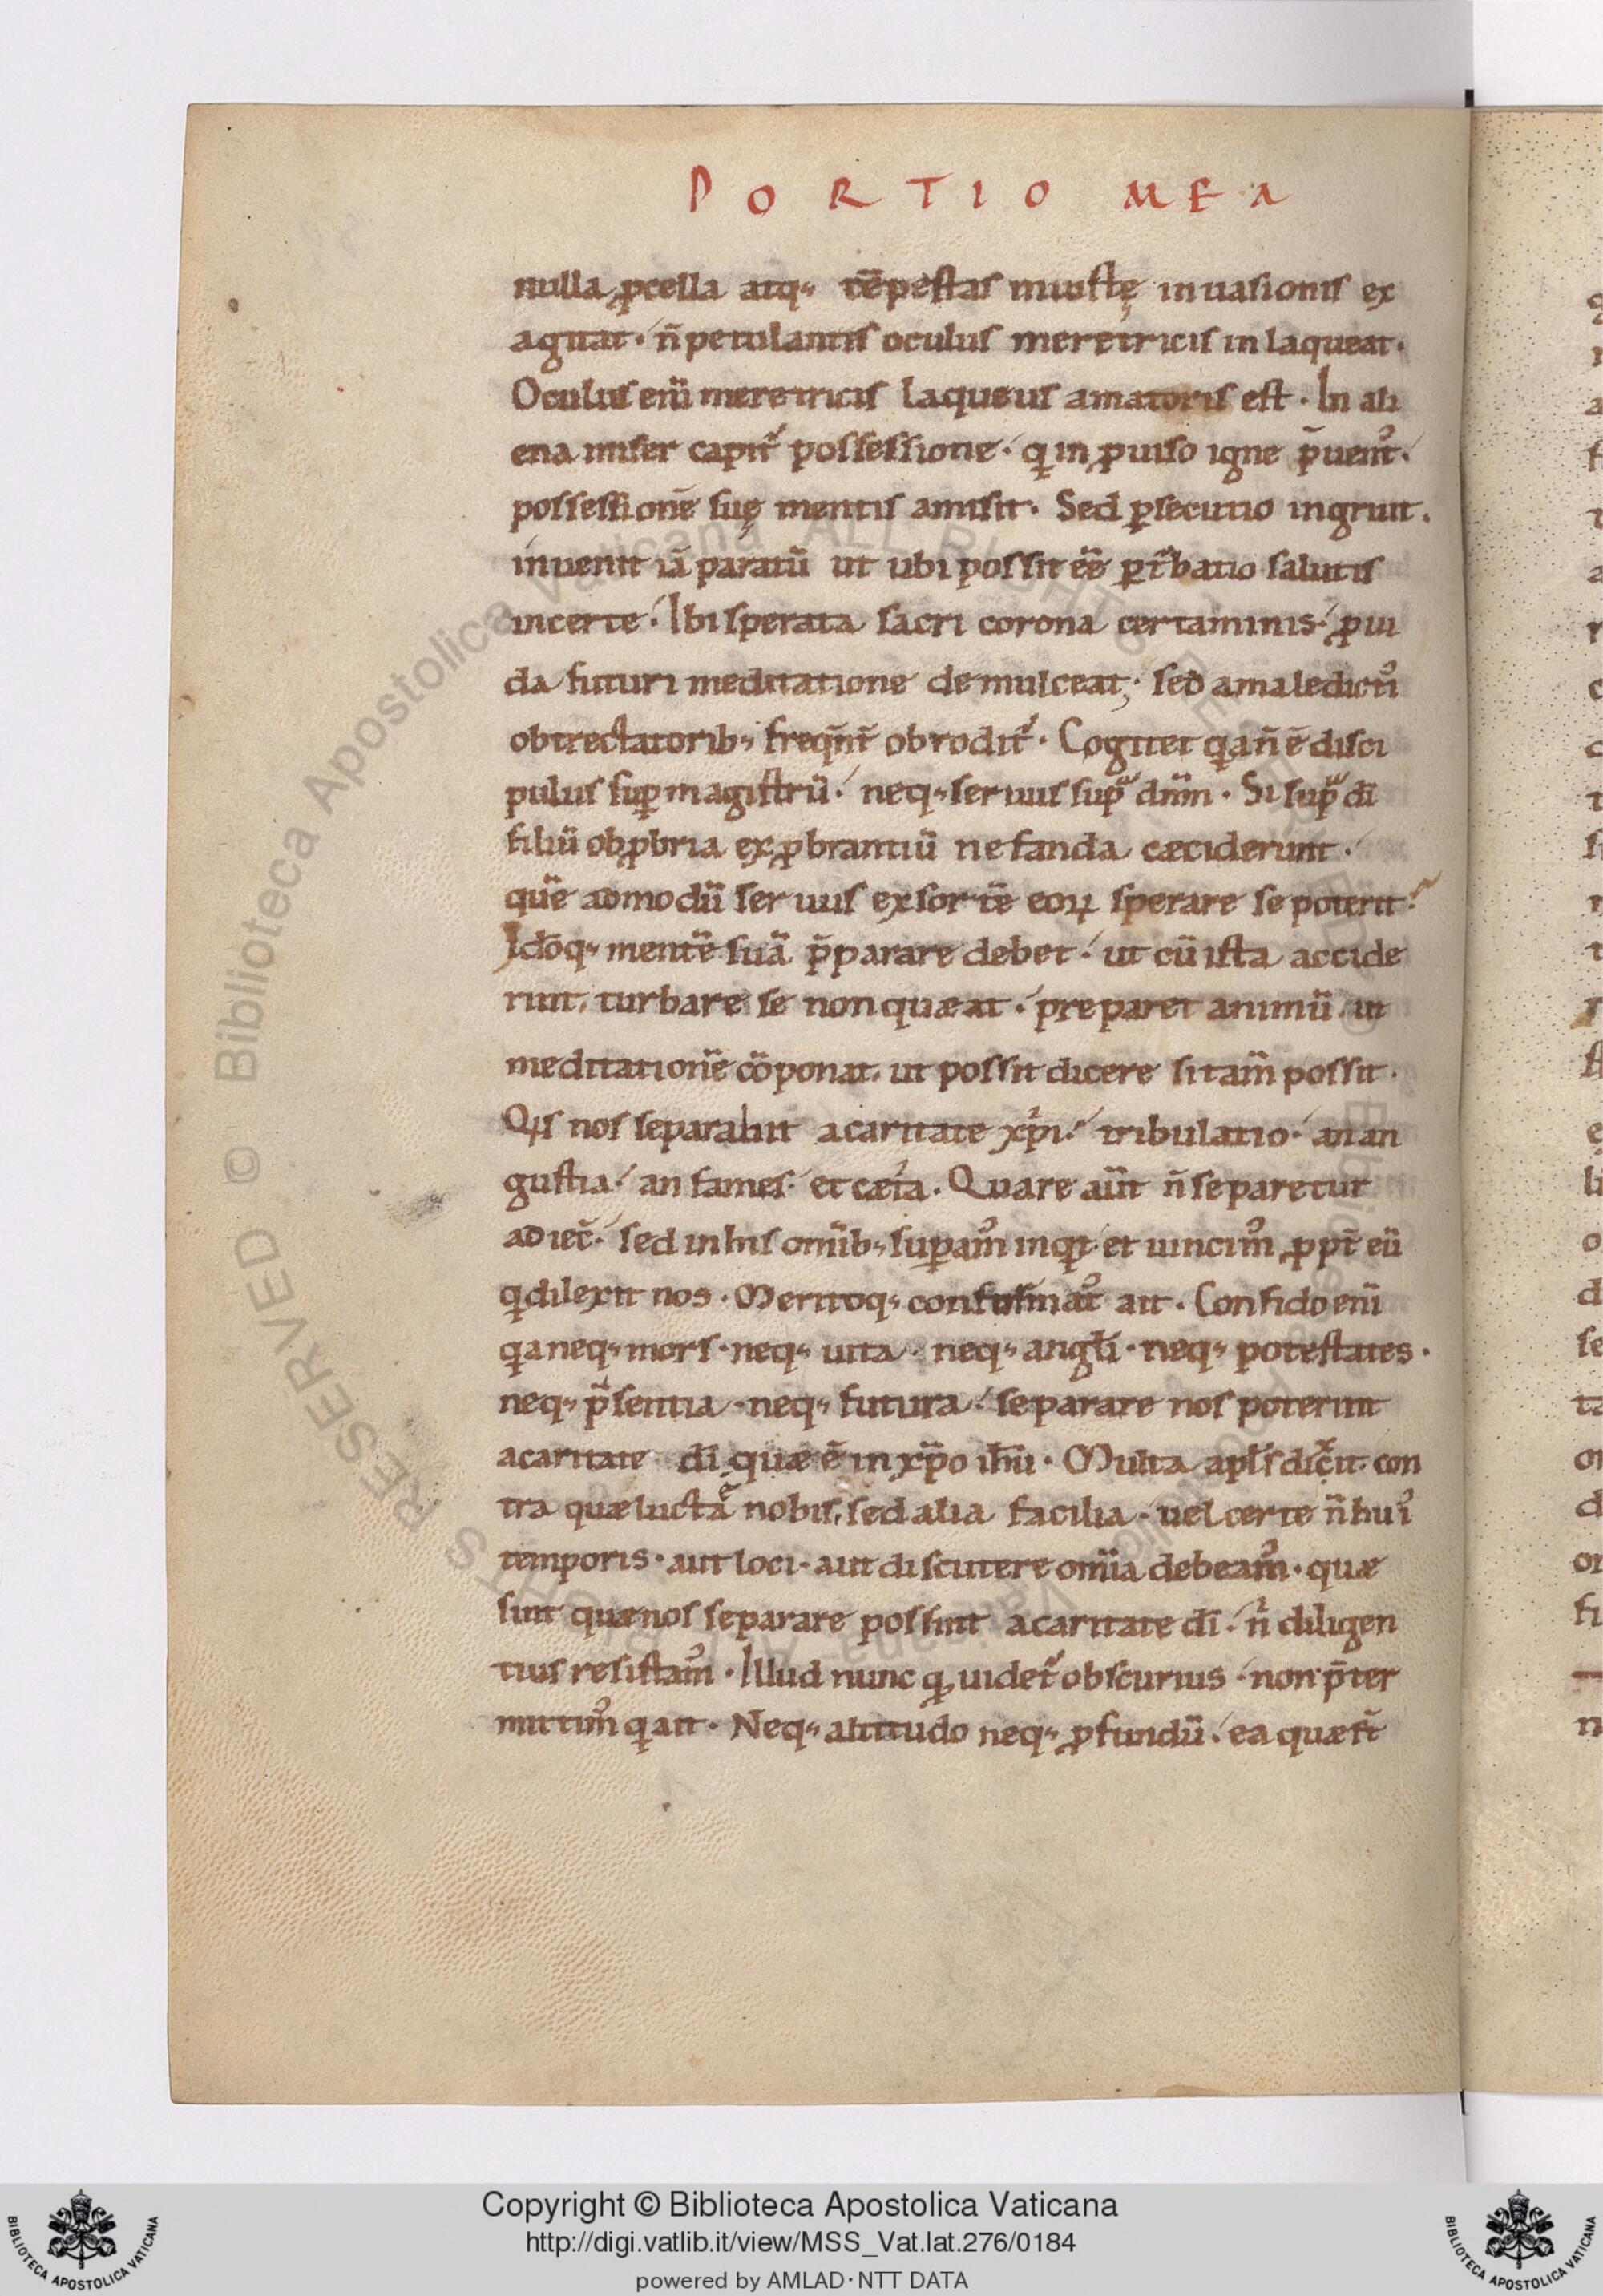 PORTIO MEA
nulla ꝓcella atq; tēpestas iniustę inuasionis ex
agitat · n̄ petulantis oculus meretricis inlaqueat ·
Oculus enī meretricis laqueus amatoris est · In ali
ena miser capit᷑ possessione · q inꝓuiso igne p̄uent᷒ ·
possessionē suę mentis amisit · Sed ꝑsecutio ingruit .
inuenit iā paratū ut ubi possit eē ꝑt᷑batio salutis
incerte · Ibi sperata sacri corona certaminis · ꝓui
da futuri meditatione demulceat ; sed amaledicti᷒
obtrectatorib; freqn̄t obrodit᷑ · Cogitet qa n̄ ē disci
pulus suꝑ magistrū · neq; seruus sup dn̄m · Si sup dī
filiū obꝓbria exꝓbrantiū nefanda cæciderunt ·
quē admodū seruus exsortē eoꝝ sperare se poterit ?
Idōq; mentē suā p̄parare debet · ut cū ista accide
rint, turbare se non quæat · preparet animū, ut
meditationē cōponat, ut possit dicere si tam̄ possit ·
Qis nos separabit acaritate xp̄i ? tribulatio · an an
gustia · an fames · et cæt᷑a · Quare aut̄ n̄ separetur
adiec̄ · sed in his om̄ib; suꝑam᷒ inqt et uincim᷒ ꝓpt̄ eū
q dilexit nos · Meritoq; confirmat᷒ ait · Confido enī
qa neq; mors · neq; uita · neq; angl̄i · neq; potestates ·
neq; p̄sentia · neq; futura · separare nos poterunt
acaritate dī quæ ē in xp̄o ih̄u · Multa apl̄s dix̄it con
tra quæ luctā nobis, sed alia facilia · uel certe n̄ hui᷒
temporis · aut loci · aut discutere om̄ia debeam᷒ · quæ
sint quæ nos separare possint acaritate dī · n̄ diligen
tius resistam᷒ · Illud nunc q uidet᷑ obscurius · non p̄ter
mittim᷒ q ait · Neq; altitudo neq; ꝓfundū · ea quæ st̄
Copyright © Biblioteca Apostolica Vaticana
http://digi.vatlib.it/view/MSS_Vat.lat.276/0184
powered by AMLAD·NTT DATA